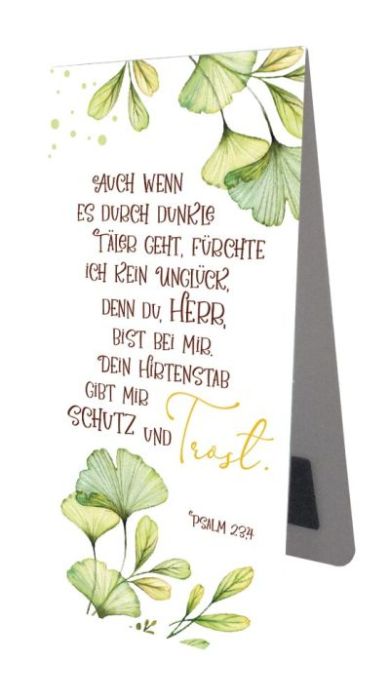 Auch wenn
es durch dunkle
Täler geht, fürchte
ich kein Unglück,
denn du, HERR,
bist bei mir.
Dein Hirtenstab
gibt mir
Schutz und Trost.
Psalm 23,4